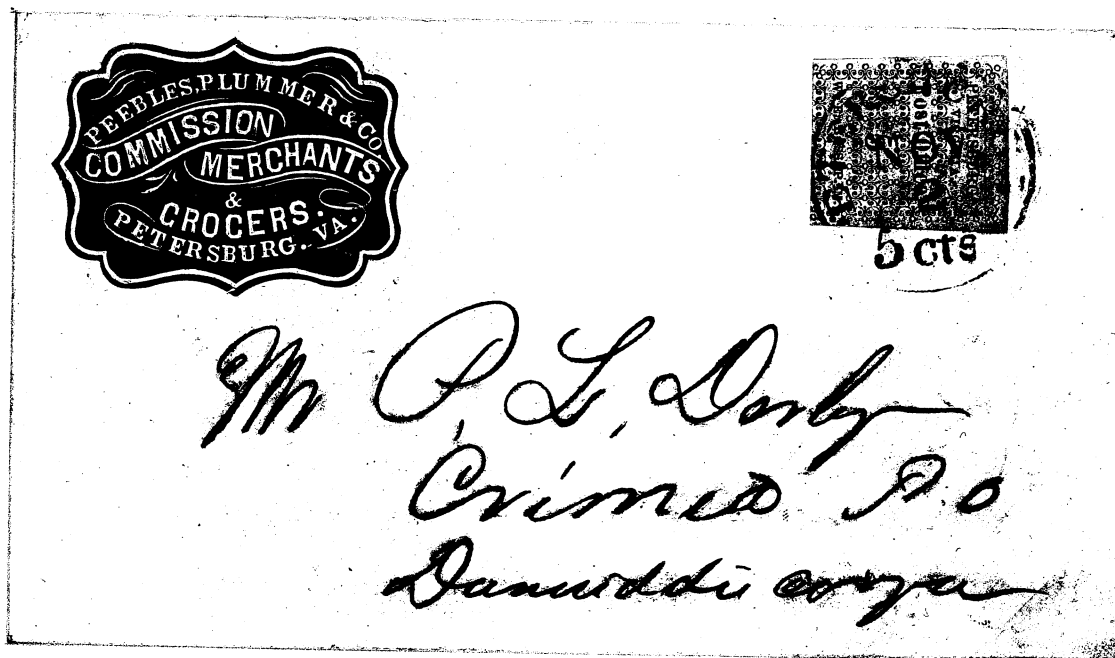 PEEBLES, PLUMMER & CO.
COMMISSION
MERCHANTS
&
GROCERS.
PETERSBURG. VA.
5 cts
Mr P. L. Derby
Crimea P.O
Dinwiddie